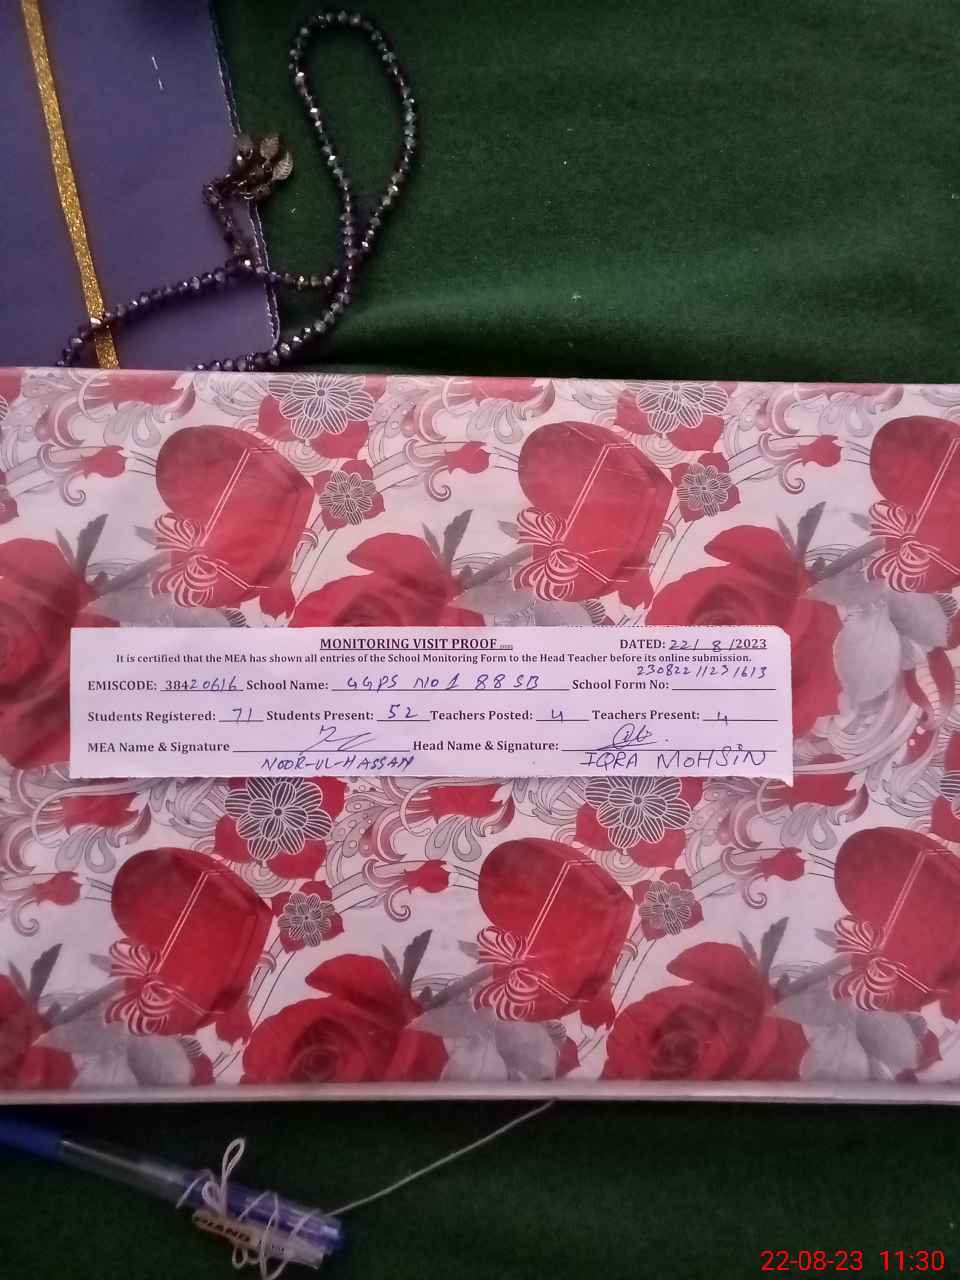 MONITORING VISIT PROOF DATED: 22/ 8 /2023
It is certified that the MEA has shown all entries of the School Monitoring Form to the Head Teacher before its online submission.
EMISCODE: 38420616 School Name: GGPS NO 1 88 SB School Form No: 230822 1123 1613
Students Registered: 71 Students Present: 52 Teachers Posted: 4 Teachers Present: 4
MEA Name & Signature Head Name & Signature:
NOOR-UL-HASSAN IQRA MOHSIN
PIANO
22-08-23 11:30